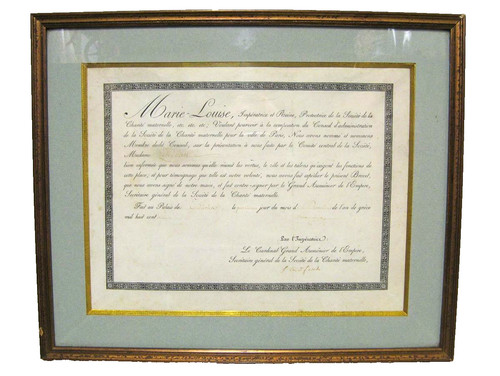 Marie Louise, Impératrice et Reine, Protectrice de la Société de la
Charité maternelle, etc. etc. etc.; Voulant pourvoir à la composition du Conseil d'administration
de la Société de la Charité maternelle pour la ville de Paris, Nous avons nommé et nommons
Membre dudit Conseil, sur la présentation à nous faite par le Comité central de la Société,
Madame
bien informée que nous sommes qu'elle réunit les vertus, le zèle et les talens qu'exigent les fonctions de
cette place; et pour témoignage que telle est notre volonté, nous avons fait expédier le présent Brevet,
que nous avons signé de notre main, et fait contre-signer par le Grand Aumônier de l'Empire,
Secrétaire général de la Société de la Charité maternelle.
Fait au Palais de le jour du mois d de l'an de grâce
mil huit cent
Par l'Impératrice:
Le Cardinal Grand Aumônier de l'Empire,
Secrétaire général de la Société de la Charité maternelle,